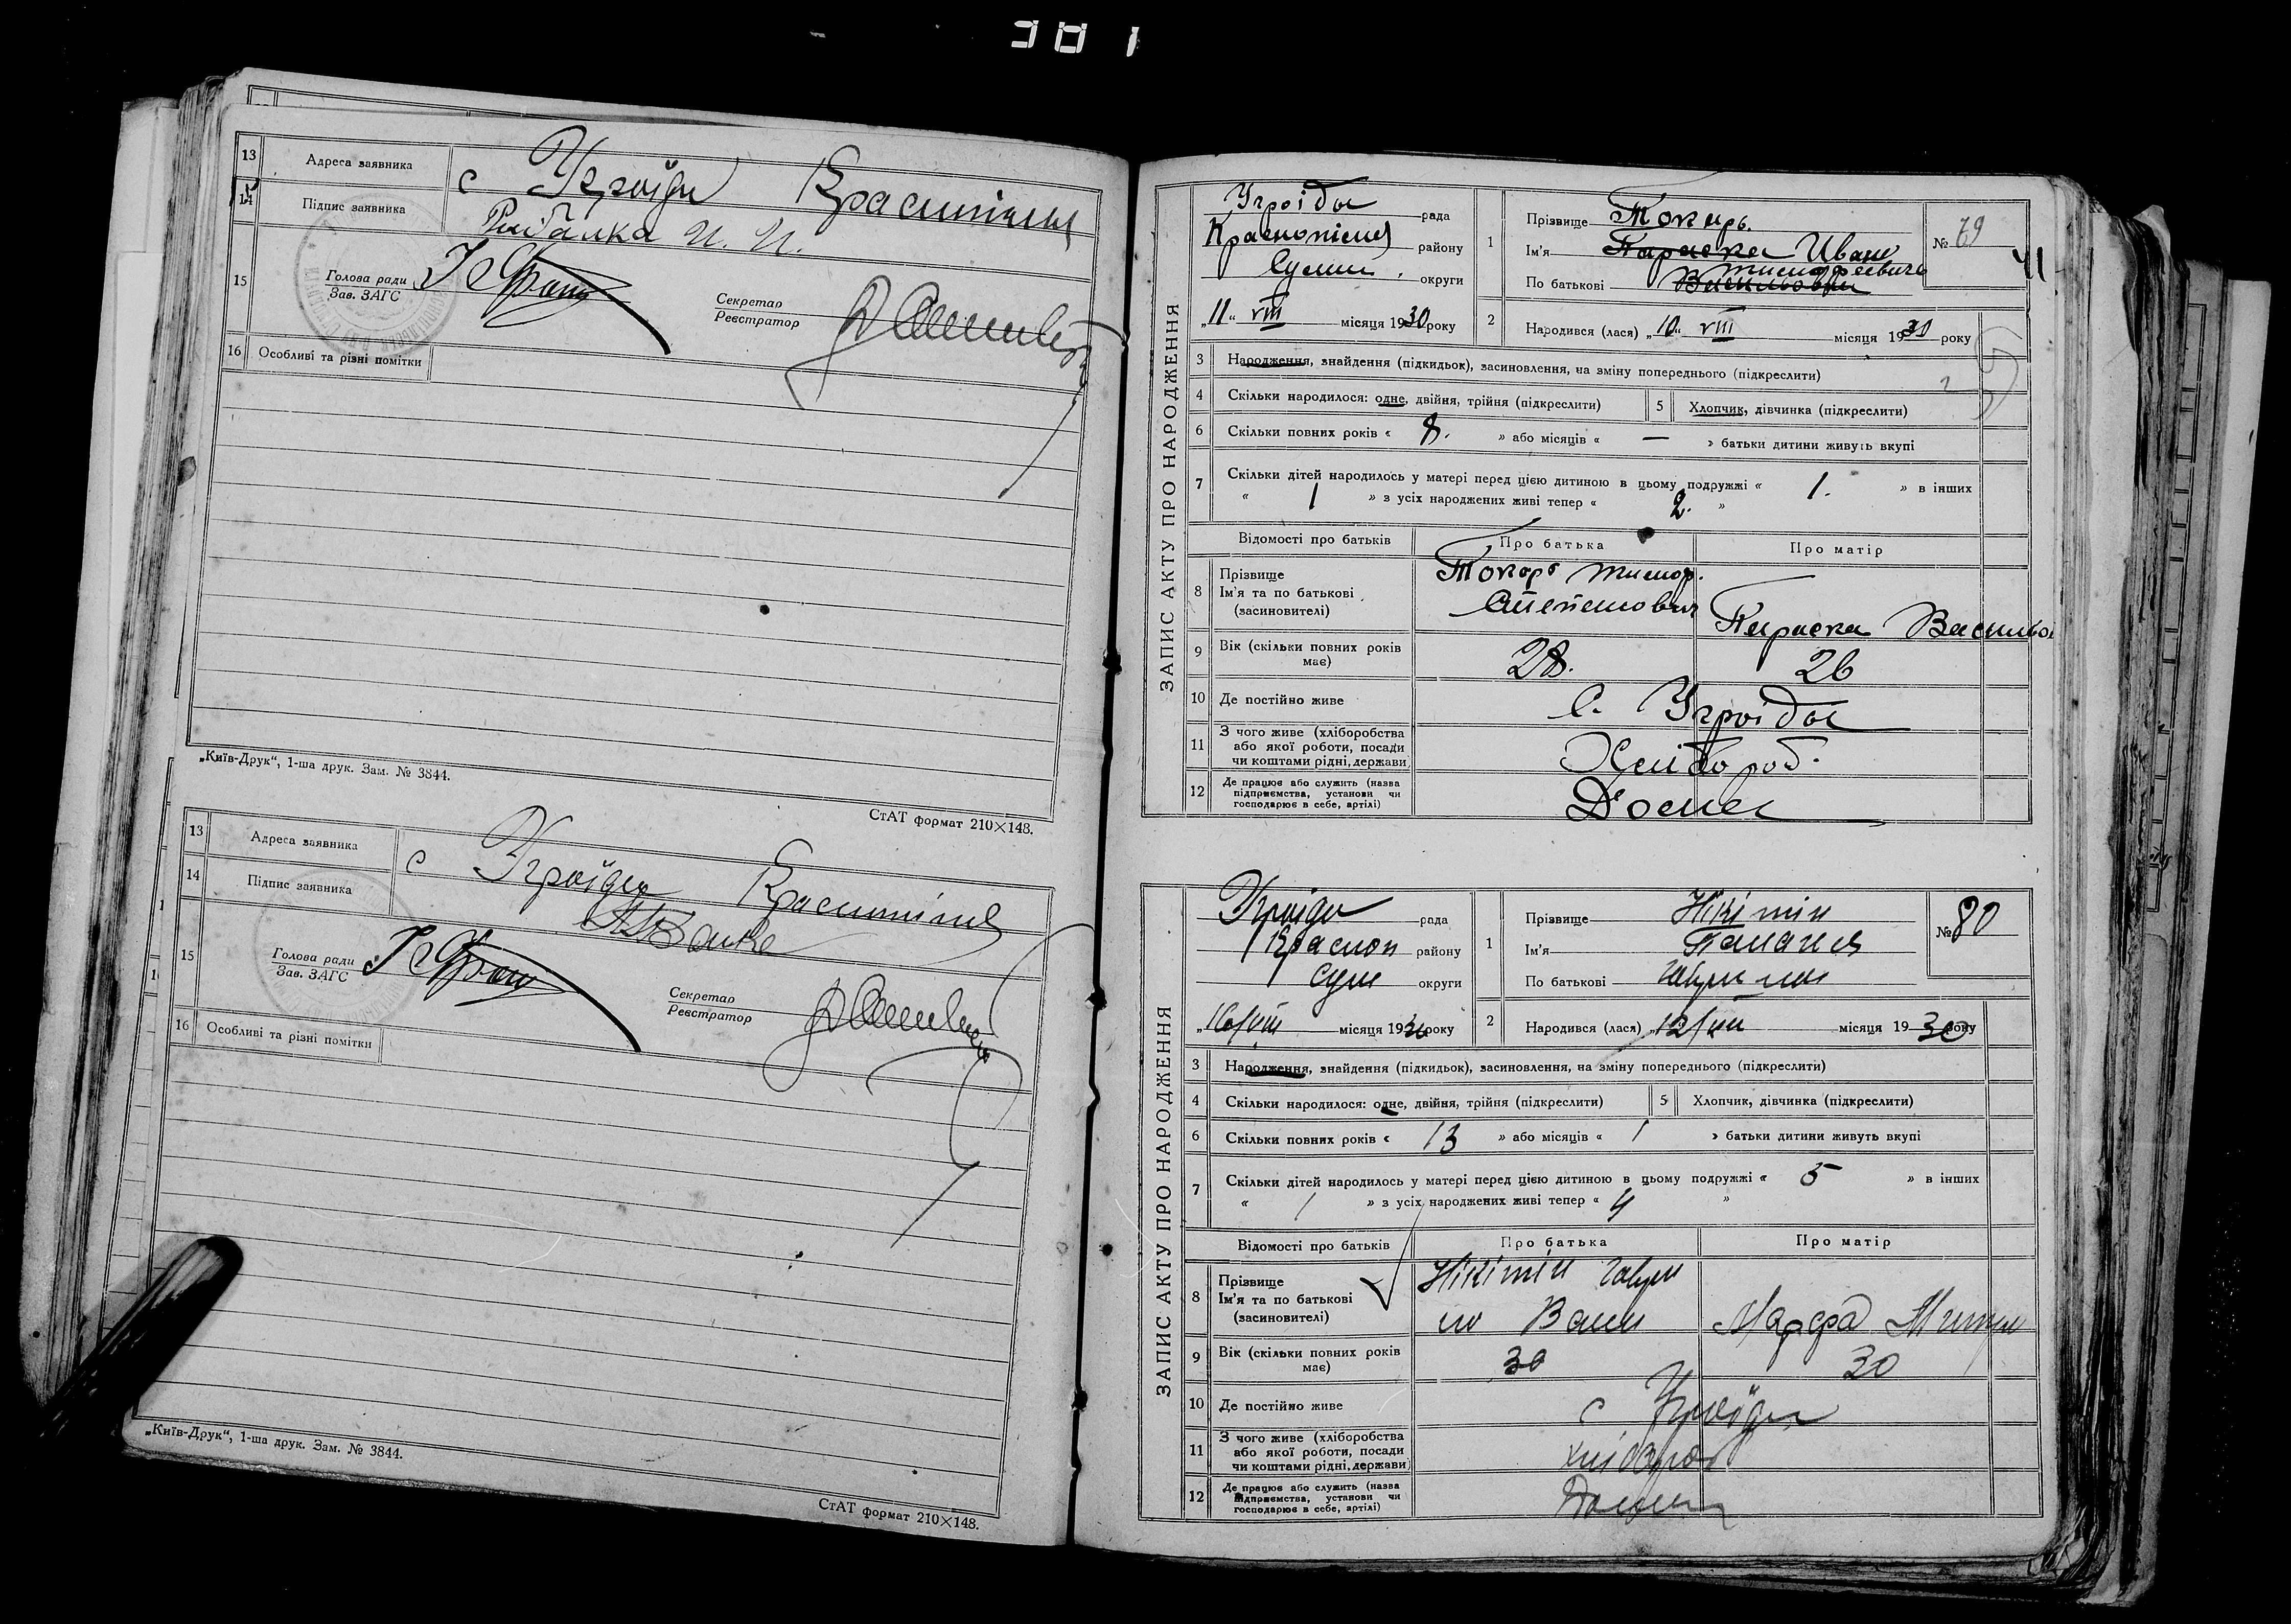 381
13 Адреса заявника с Угроїди Краснопілля
14 Підпис заявника Рибалка И. И.
15 Голова ради
Зав. ЗАГС
Секретар
Реєстратор
16 Особливі та різні помітки
„Київ-Друк“, 1-ша друк. Зам. № 3844.
СтАТ формат 210×148.
13 Адреса заявника с Угроїди
14 Підпис заявника
15 Голова ради
Зав. ЗАГС
Секретар
Реєстратор
16 Особливі та різні помітки
„Київ-Друк“, 1-ша друк. Зам. № 3844.
СтАТ формат 210×148.
41
ЗАПИС АКТУ ПРО НАРОДЖЕННЯ
Угроіды рада
району
Сумск округи
„11“ VIII місяця 1930 року
1 Прізвище Токарь.
Ім'я Параска Иван
По батькові Васильовна Тимофеевичь
№ 79
2 Народився (лася) „10“ VIII місяця 1930 року
3 Народження, знайдення (підкидьок), засиновлення, на зміну попереднього (підкреслити)
4 Скільки народилося: одне, двійня, трійня (підкреслити) 5 Хлопчик, дівчинка (підкреслити)
6 Скільки повних років « 8. » або місяців « — » батьки дитини живуть вкупі
7 Скільки дітей народилось у матері перед цією дитиною в цьому подружжі « 1. » в інших
« 1 » з усіх народжених живі тепер « 2. »
Відомості про батьків Про батька Про матір
8 Прізвище
Ім'я та по батькові
(засиновителі)
Токарь Тимоф.
Степанович
Параска Васильов
9 Вік (скільки повних років має) 28. 26
10 Де постійно живе С. Угроіды
11 З чого живе (хліборобства
або якої роботи, посади
чи коштами рідні, держави)
Хлібороб.
12 Де працює або служить (назва
підприємства, установи чи
господарює в себе, артілі)
Дома
ЗАПИС АКТУ ПРО НАРОДЖЕННЯ
Угроїди рада
Красноп району
Сум округи
„16/VIII місяця 1930 року
1 Прізвище Нікітін
Ім'я Паланія
По батькові
№ 80
2 Народився (лася) „12/VIII місяця 1930 року
3 Народження, знайдення (підкидьок), засиновлення, на зміну попереднього (підкреслити)
4 Скільки народилося: одне, двійня, трійня (підкреслити) 5 Хлопчик, дівчинка (підкреслити)
6 Скільки повних років « 13 » або місяців « 1 » батьки дитини живуть вкупі
7 Скільки дітей народилось у матері перед цією дитиною в цьому подружжі « 5 » в інших
« / » з усіх народжених живі тепер « 4 »
Відомості про батьків Про батька Про матір
8 Прізвище
Ім'я та по батькові
(засиновителі)
Нікітін
Марфа
9 Вік (скільки повних років має) 30 30
10 Де постійно живе с Угроїди
11 З чого живе (хліборобства
або якої роботи, посади
чи коштами рідні, держави)
хлібороб
12 Де працює або служить (назва
підприємства, установи чи
господарює в себе, артілі)
Дома